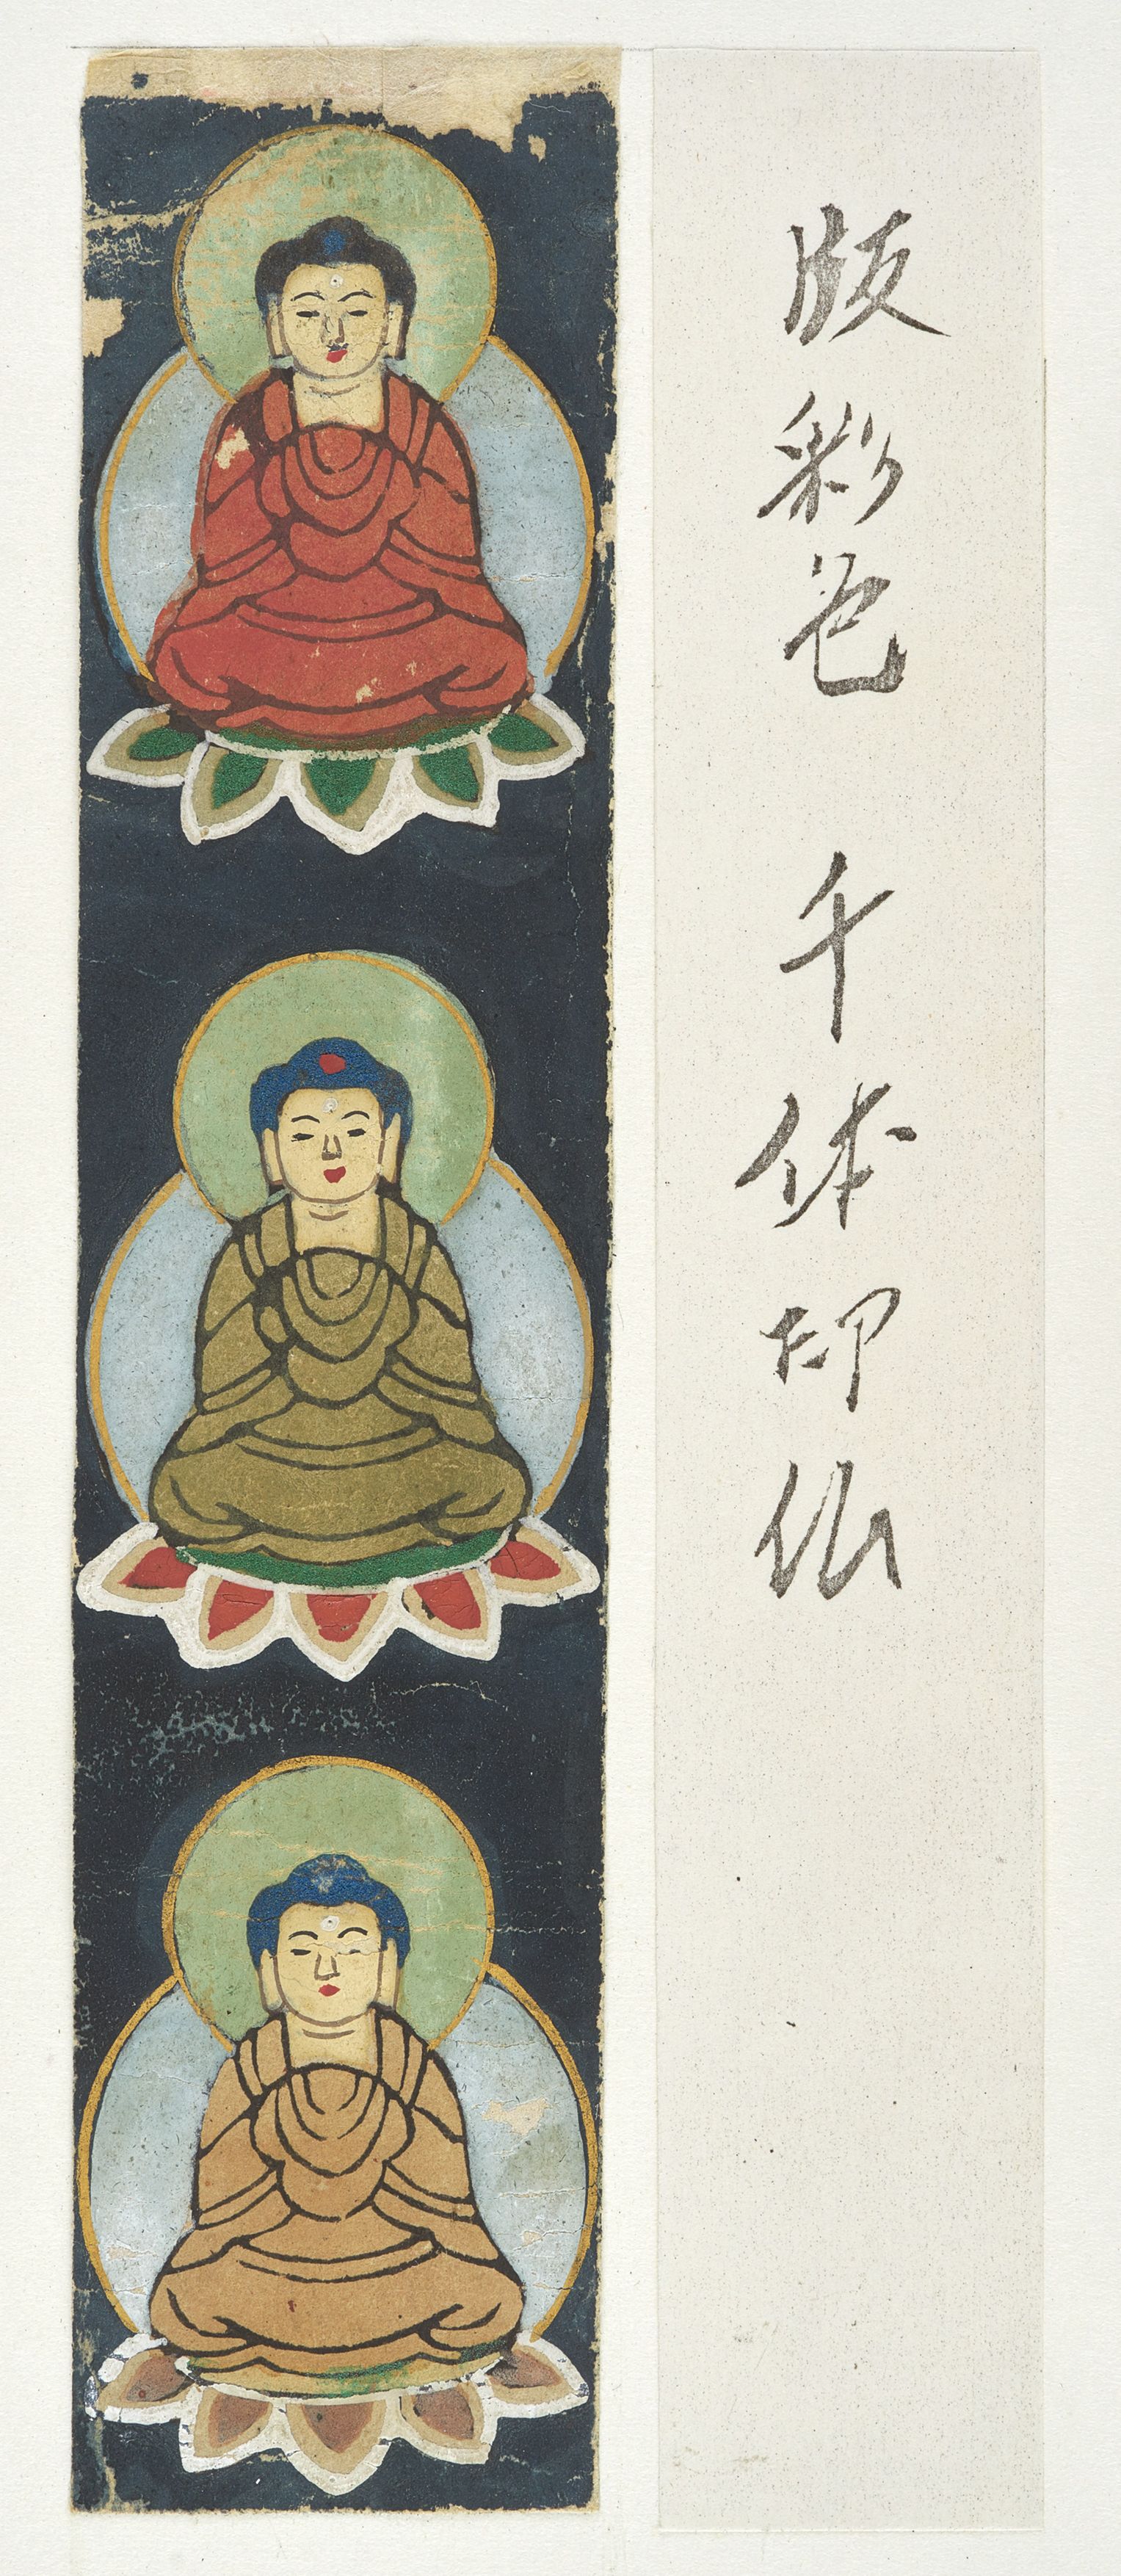 版彩色 千体印仏